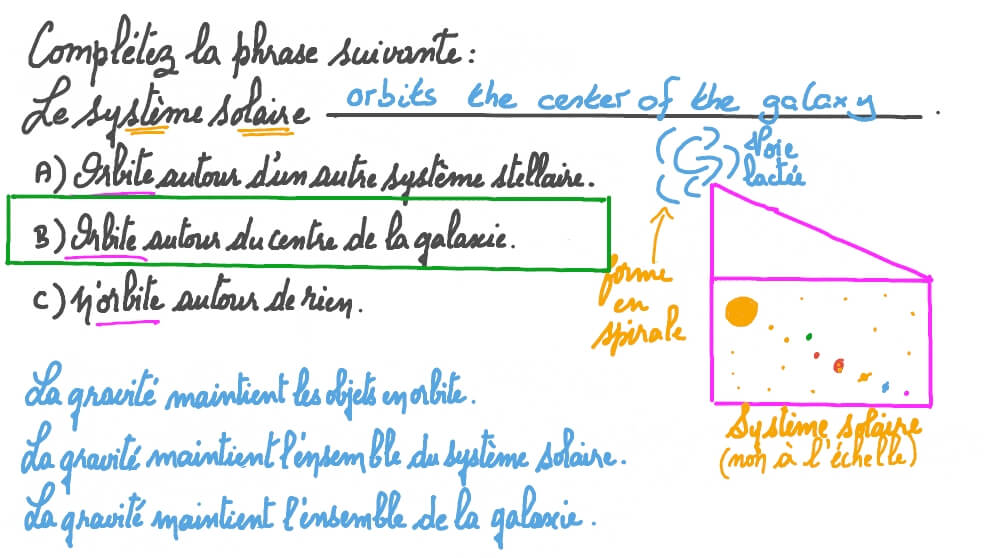 Complétez la phrase suivante :
Le système solaire orbits the center of the galaxy.
Voie
lactée
A) Orbite autour d'un autre système stellaire.
B) Orbite autour du centre de la galaxie.
C) N'orbite autour de rien.
forme
en
spirale
La gravité maintient les objets en orbite.
La gravité maintient l'ensemble du système solaire.
La gravité maintient l'ensemble de la galaxie.
Système solaire
(non à l'échelle)